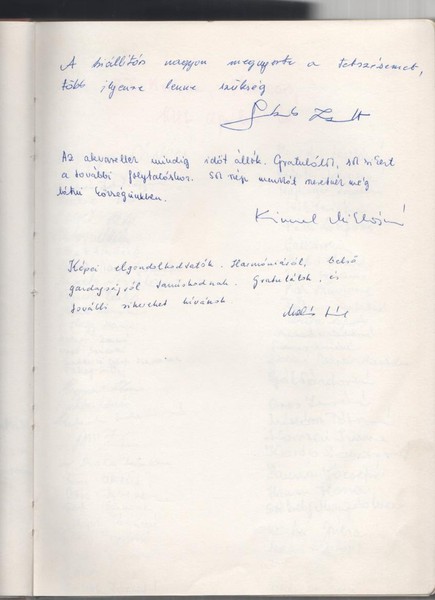 A kiállítás nagyon megnyerte a tetszésemet,
több ilyenre lenne szükség
Szabó Zsolt
Az akvarellek mindig időt állók. Gratulálok, sok sikert
a további folytatáshoz. Sok népi
látni községünkben.
Kimmel Miklósné
Képei elgondolkodtatók. Harmóniáról, belső
gazdagságról tanúskodnak. Gratulálok, és
további sikereket kívánok